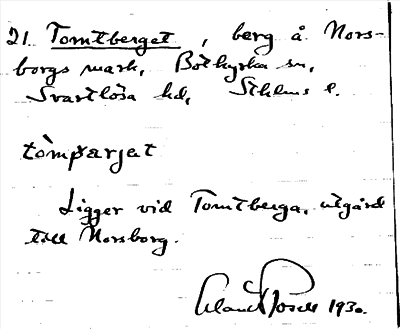 21. Tomtberget, berg å Nors-
borgs mark, Botkyrka sn,
Svartlösa hd, Sthlms l.
Ligger vid Tomtberga, utgård
till Norsborg.
1930.